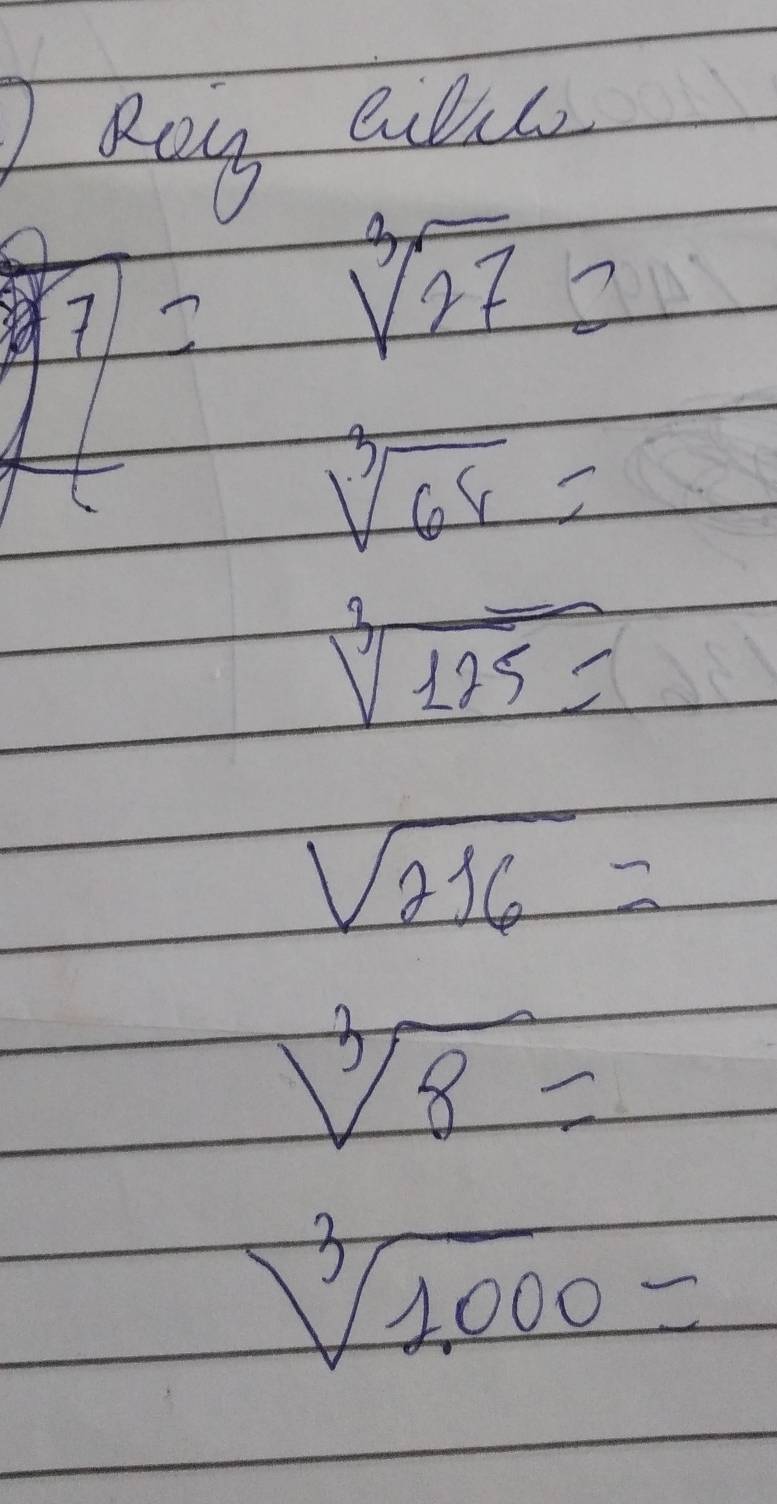 ) Raiz cúbica
7 = ∛27 =
∛64 =
∛125 =
√216 =
∛8 =
∛1.000 =